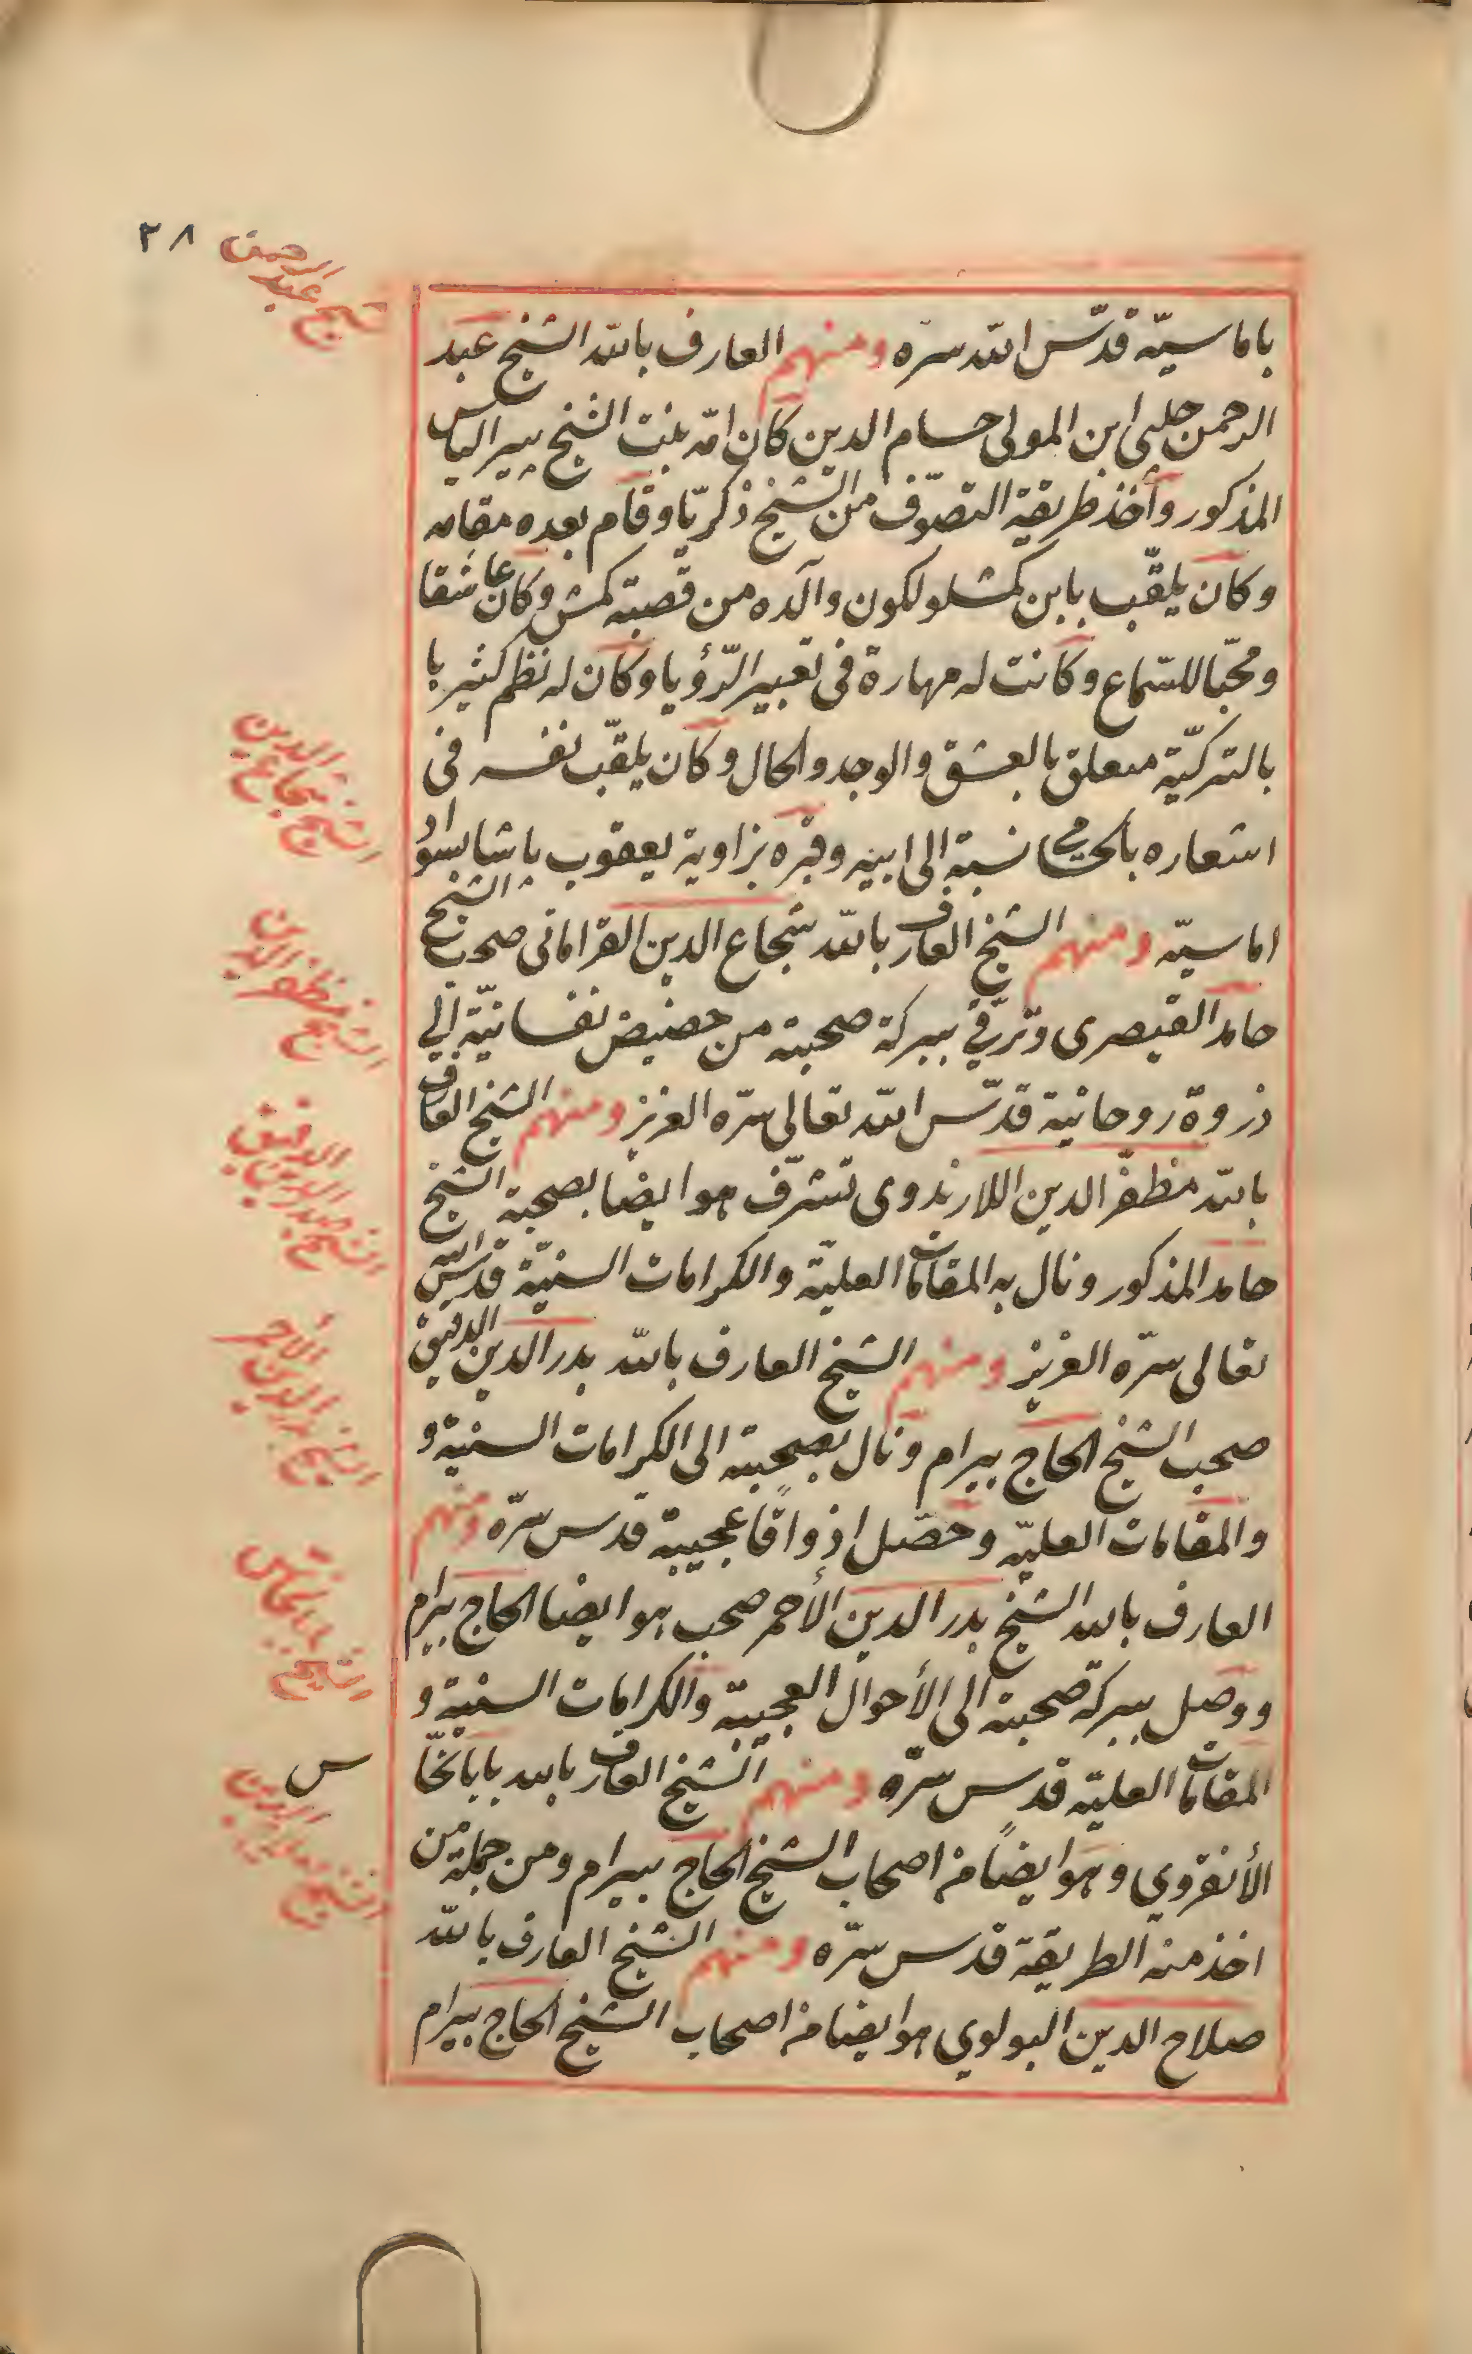 ٣٨
شيخ عبد الرحمن
باماسيّه قدّس الله سرّه ومنهم العارف بالله الشيخ عبد
الرحمن چلبى ابن المولى حسام الدين كان امّه بنت الشيخ پير الياس
المذكور وأخذ طريقة التصوّف من الشيخ ذكريّا وقام بعده مقامه
وكان يلقّب بابن كمشلو لكون والده من قصبة كمش وكان عاشقا
ومحبّا للسّماع وكانت له مهارة فى تعبير الرّؤيا وكان له نظم كثير با
بالتركيّة متعلق بالعشق والوجد والحال وكان يلقّب نفسه فى
اشعاره بالحسامى نسبة الى ابيه وقبره بزاوية يعقوب پاشا بسواد
اماسيّه ومنهم الشيخ العارف بالله شجاع الدين القرامانى صحب الشيخ
حامد القيصرى وترقى ببركة صحبته من حضيض نفسانيّة الي
ذروة روحانية قدّس الله تعالى سرّه العزيز ومنهم الشيخ العارف
بالله مظفّر الدين اللارندوى تشرّف هو ايضا بصحبة الشيخ
حامد المذكور ونال به المقامات العليّة والكرامات السنيّة قدّس الله
تعالى سرّه العزيز ومنهم الشيخ العارف بالله بدر الدين الدقيق
صحب الشيخ الحاج بيرام ونال بصحبته الى الكرامات السنية و
والمقامات العليّه وحصّل اذواقا عجيبة قدس سرّه ومنهم
العارف بالله الشيخ بدر الدين الأحمر صحب هو ايضا الحاج بيرام
ووصل ببركة صحبته الى الأحوال العجيبة والكرامات السنية و
المقامات العليّه قدس سرّه ومنهم الشيخ العارف بالله بابا نخّا
س
الأنقروي وهو ايضًا من اصحاب الشيخ الحاج بيرام ومن جملة من
اخذ منه الطريقة قدس سرّه ومنهم الشيخ العارف بالله
صلاح الدين البولوي هو ايضا من اصحاب الشيخ الحاج بيرام
الشيخ شجاع الدين
الشيخ مظفر الدين
الشيخ بدر الدين الدقيق
الشيخ بدر الدين الأحمر
الشيخ بابا نخاس
الشيخ صلاح الدين